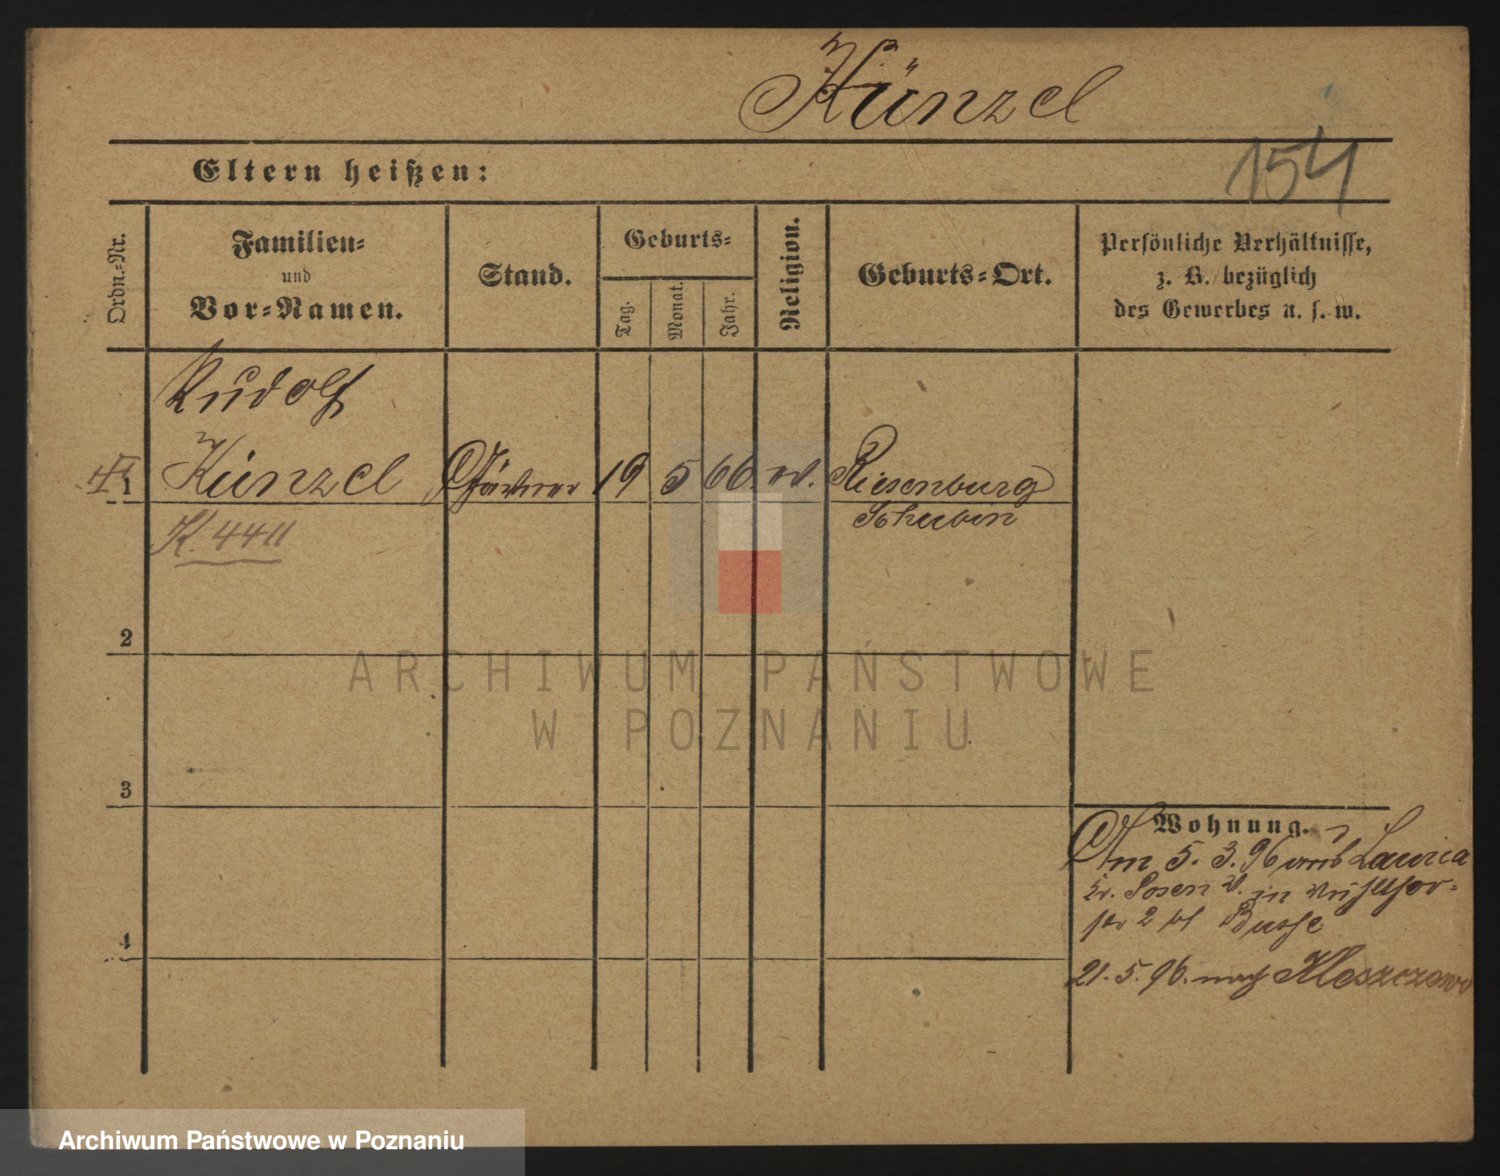 Künzel
154
Eltern heißen:
Ordn.-Nr.
Familien-
und
Vor-Namen.
Stand.
Geburts-
Tag.
Monat.
Jahr.
Religion.
Geburts-Ort.
Persönliche Verhältnisse,
z. B. bezüglich
des Gewerbes u. s. w.
Rudolf
1 Künzel Gärtner 19 5 66 ev. Riesenburg
K. 4411 Schubin
2
3
4
Wohnung.
Am 5. 3. 96 aus Lawica
Kr. Posen W. in Mühlthor-
str 2 bei Busse
21. 5. 96. nach Kleszczewo
ARCHIWUM PAŃSTWOWE
W POZNANIU
Archiwum Państwowe w Poznaniu